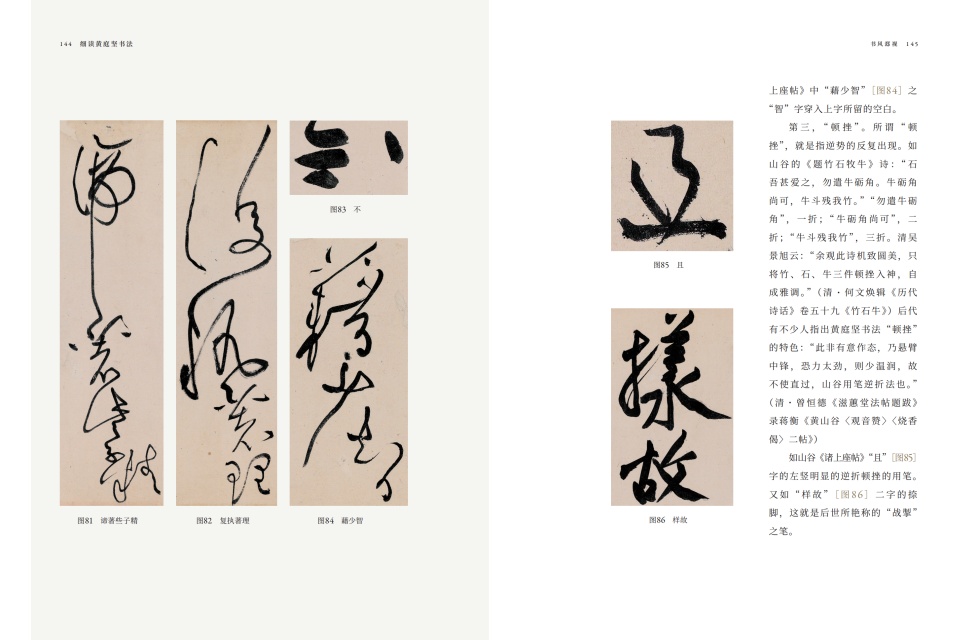 144 细读黄庭坚书法
图83 不
图81 谛著些子精
图82 复执著理
图84 藉少智
书风鄙视 145
图85 且
图86 样故
上座帖》中“藉少智”［图84］之
“智”字穿入上字所留的空白。
第三，“顿挫”。所谓“顿
挫”，就是指逆势的反复出现。如
山谷的《题竹石牧牛》诗：“石
吾甚爱之，勿遣牛砺角。牛砺角
尚可，牛斗残我竹。”“勿遣牛砺
角”，一折；“牛砺角尚可”，二
折；“牛斗残我竹”，三折。清吴
景旭云：“余观此诗机致圆美，只
将竹、石、牛三件顿挫入神，自
成雅调。”（清·何文焕辑《历代
诗话》卷五十九《竹石牛》）后代
有不少人指出黄庭坚书法“顿挫”
的特色：“此非有意作态，乃悬臂
中锋，恐力太劲，则少温润，故
不使直过，山谷用笔逆折法也。”
（清·曾恒德《滋蕙堂法帖题跋》
录蒋衡《黄山谷〈观音赞〉〈烧香
偈〉二帖》）
如山谷《诸上座帖》“且”［图85］
字的左竖明显的逆折顿挫的用笔。
又如“样故”［图86］二字的捺
脚，这就是后世所艳称的“战掣”
之笔。